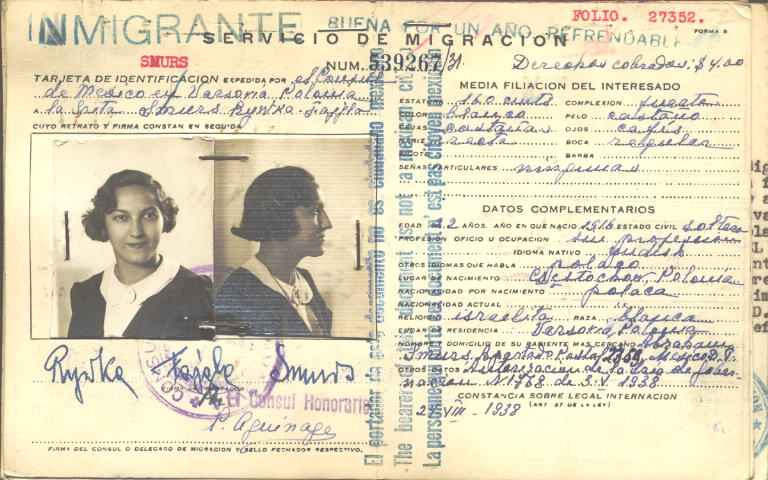 INMIGRANTE BUENA POR UN AÑO REFRENDABLE
FOLIO. 27352.
FORMA 5
SERVICIO DE MIGRACION
SMURS
NUM. 539267/31.
Derechos cobrados: $4.00
TARJETA DE IDENTIFICACION EXPEDIDA POR el Consul
de Mexico en Varsovia Polonia
A la Srita Smurs Rywka Fajgla
CUYO RETRATO Y FIRMA CONSTAN EN SEGUIDA
MEDIA FILIACION DEL INTERESADO
ESTATURA 160 cmts COMPLEXION fuerte
COLOR blanco PELO castaño
CEJAS castañas OJOS cafés
NARIZ recta BOCA regular
BIGOTE BARBA
SEÑAS PARTICULARES ningunas
DATOS COMPLEMENTARIOS
EDAD 22 AÑOS. AÑO EN QUE NACIO 1916 ESTADO CIVIL soltera
PROFESION OFICIO U OCUPACION sin profesion
IDIOMA NATIVO yidish
OTROS IDIOMAS QUE HABLA polaco
LUGAR DE NACIMIENTO Polonia
NACIONALIDAD POR NACIMIENTO polaca
NACIONALIDAD ACTUAL
RELIGION israelita RAZA blanca
LUGAR DE RESIDENCIA Varsovia Polonia
NOMBRE Y DOMICILIO DE SU PARIENTE MAS CERCANO Abraham
Smurs Apartado Postal 2759, Mexico D.F.
OTROS DATOS Autorizacion de la Sria de Gober-
nacion N1768 de 3.V.1938
CONSTANCIA SOBRE LEGAL INTERNACION
(ART 57 DE LA LEY)
24 VIII - 1938
El portador de este documento no es ciudadano mexicano
The bearer of this document is not a mexican citizen
La personne de ce document n'est pas citoyen mexicain
Rywka Fajgla Smurs
El Consul Honorario
P. Aguinaga
FIRMA DEL CONSUL O DELEGADO DE MIGRACION Y SELLO FECHADOR RESPECTIVO.